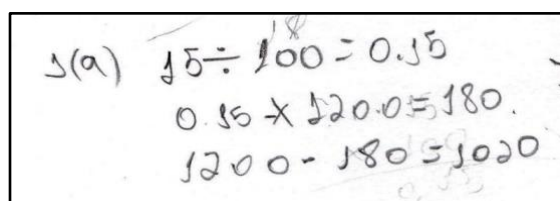 1(a) 15 ÷ 100 = 0.15
0.15 × 120.0 = 180.
1200 - 180 = 1020